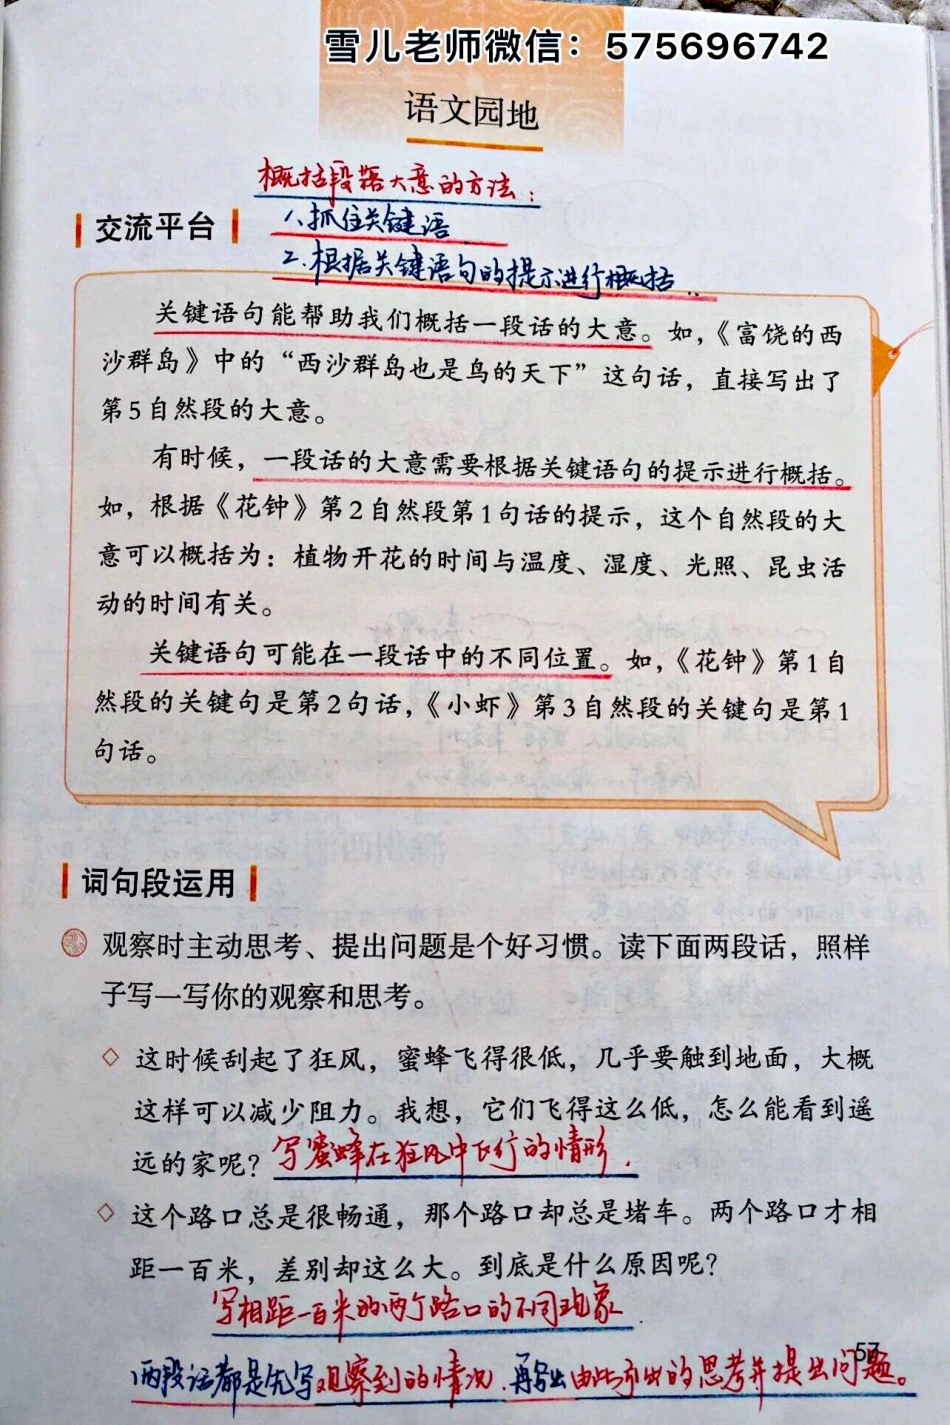 雪儿老师微信：575696742
语文园地
概括段落大意的方法：
1、抓住关键语
交流平台
2.根据关键语句的提示进行概括..
关键语句能帮助我们概括一段话的大意。如，《富饶的西
沙群岛》中的“西沙群岛也是鸟的天下”这句话，直接写出了
第5自然段的大意。
有时候，一段话的大意需要根据关键语句的提示进行概括。
如，根据《花钟》第2自然段第1句话的提示，这个自然段的大
意可以概括为：植物开花的时间与温度、湿度、光照、昆虫活
动的时间有关。
关键语句可能在一段话中的不同位置。如，《花钟》第1自
然段的关键句是第2句话，《小虾》第3自然段的关键句是第1
句话。
词句段运用
观察时主动思考、提出问题是个好习惯。读下面两段话，照样
子写一写你的观察和思考。
◇ 这时候刮起了狂风，蜜蜂飞得很低，几乎要触到地面，大概
这样可以减少阻力。我想，它们飞得这么低，怎么能看到遥
远的家呢？写蜜蜂在狂风中飞行的情形.
◇ 这个路口总是很畅通，那个路口却总是堵车。两个路口才相
距一百米，差别却这么大。到底是什么原因呢？
写相距一百米的两个路口的不同现象
57
两段话都是先写观察到的情况.再写出由此引出的思考并提出问题。